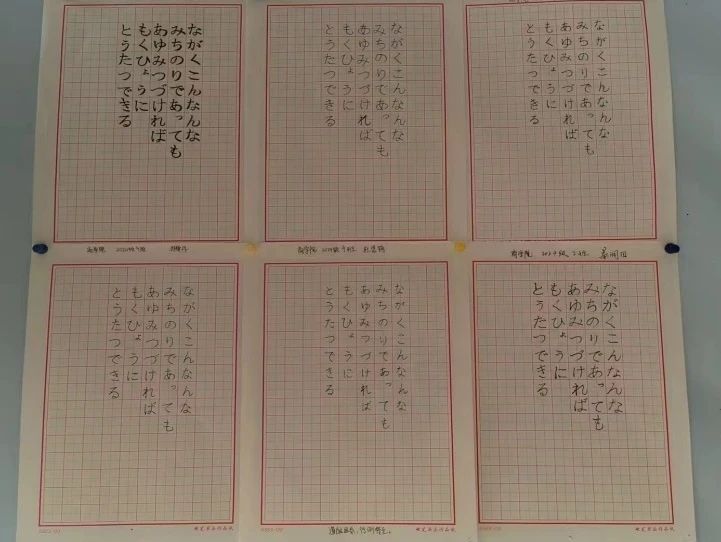 ながくこんなんな
みちのりであっても
あゆみつづければ
もくひょうに
とうたつできる
商学院
ながくこんなんな
みちのりであっても
あゆみつづければ
もくひょうに
とうたつできる
商学院
ながくこんなんな
みちのりであっても
あゆみつづければ
もくひょうに
とうたつできる
商学院
ながくこんなんな
みちのりであっても
あゆみつづければ
もくひょうに
とうたつできる
硬笔书法作品纸
ながくこんなんな
みちのりであっても
あゆみつづければ
もくひょうに
とうたつできる
硬笔书法作品纸
ながくこんなんな
みちのりであっても
あゆみつづければ
もくひょうに
とうたつできる
硬笔书法作品纸